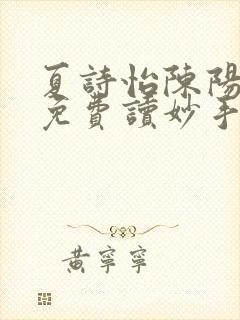 夏詩怡陳陽
免費讀妙手
黃寧寧